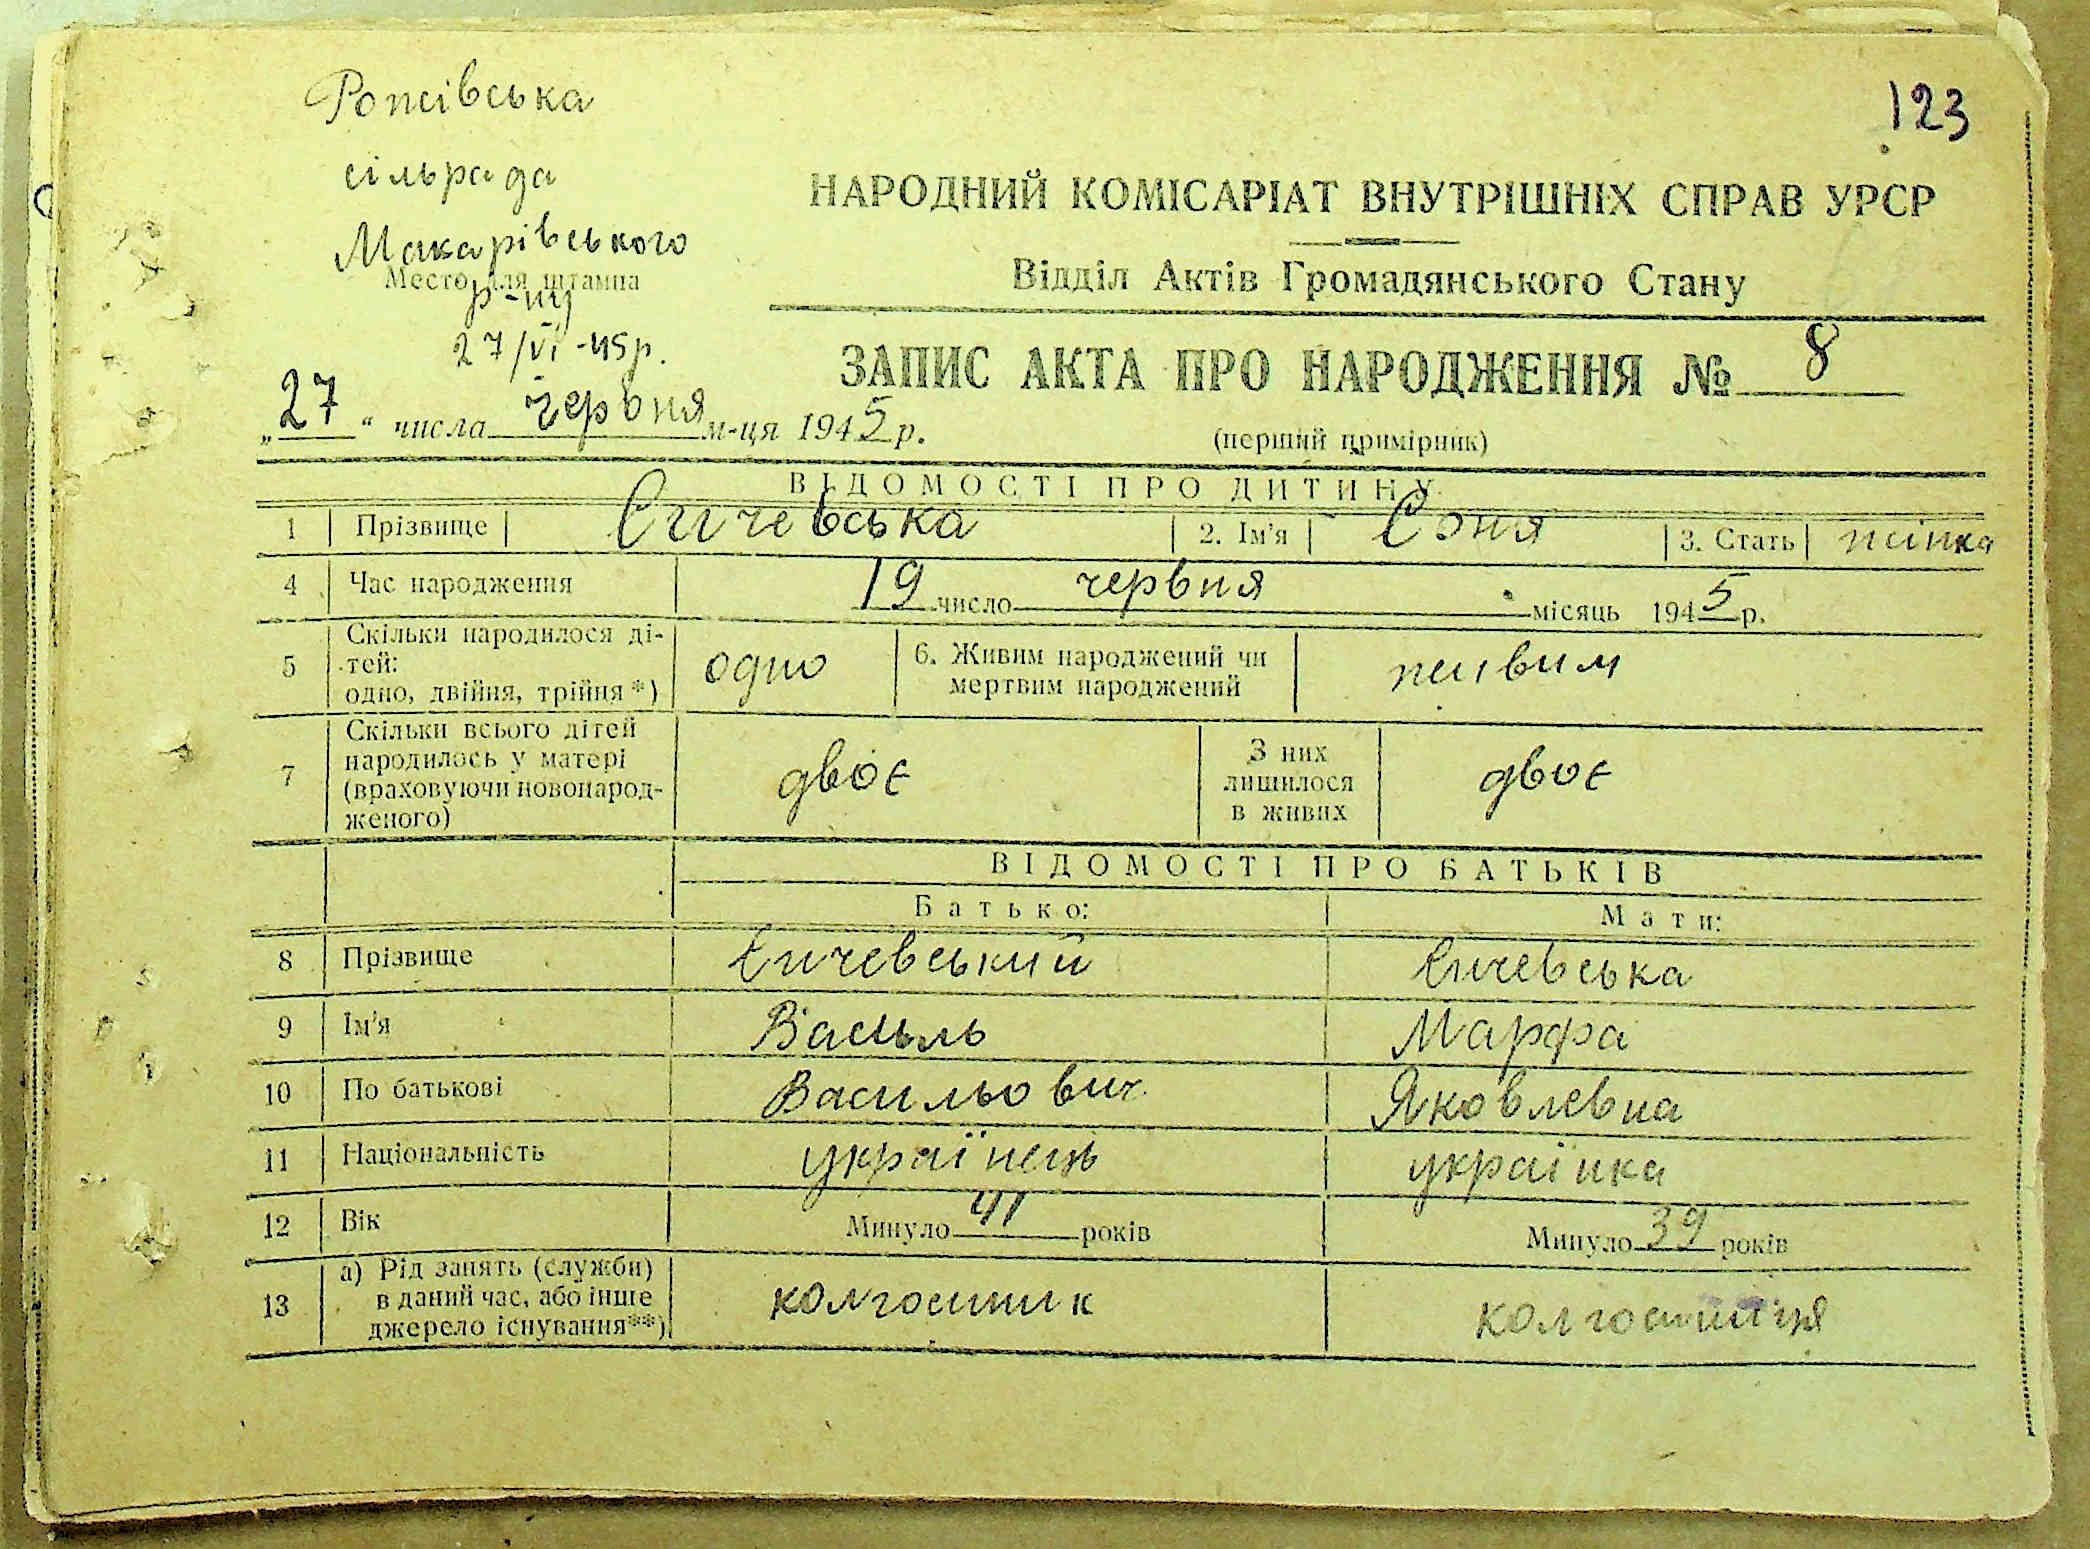 Рожівська
123
сільрада
Макарівського
Место для штампа
р-ну
27/VI-45р.
НАРОДНИЙ КОМІСАРІАТ ВНУТРІШНІХ СПРАВ УРСР
Відділ Актів Громадянського Стану
ЗАПИС АКТА ПРО НАРОДЖЕННЯ № 8
„27“ числа червня м-ця 1945 р.
(перший примірник)
ВІДОМОСТІ ПРО ДИТИНУ
1 Прізвище Сичевська 2. Ім'я Соня 3. Стать жінка
4 Час народження 19 число червня місяць 1945 р.
5 Скільки народилося ді-
тей:
одно, двійня, трійня*) одно 6. Живим народжений чи
мертвим народжений живим
7 Скільки всього дітей
народилось у матері
(враховуючи новонарод-
женого) двоє З них
лишилося
в живих двоє
ВІДОМОСТІ ПРО БАТЬКІВ
Батько: Мати:
8 Прізвище Сичевський Сичевська
9 Ім'я Василь Марфа
10 По батькові Васильович Яковлевна
11 Національність українець українка
12 Вік Минуло 41 років Минуло 39 років
13 а) Рід занять (служби)
в даний час, або інше
джерело існування**) колгоспник колгоспниця